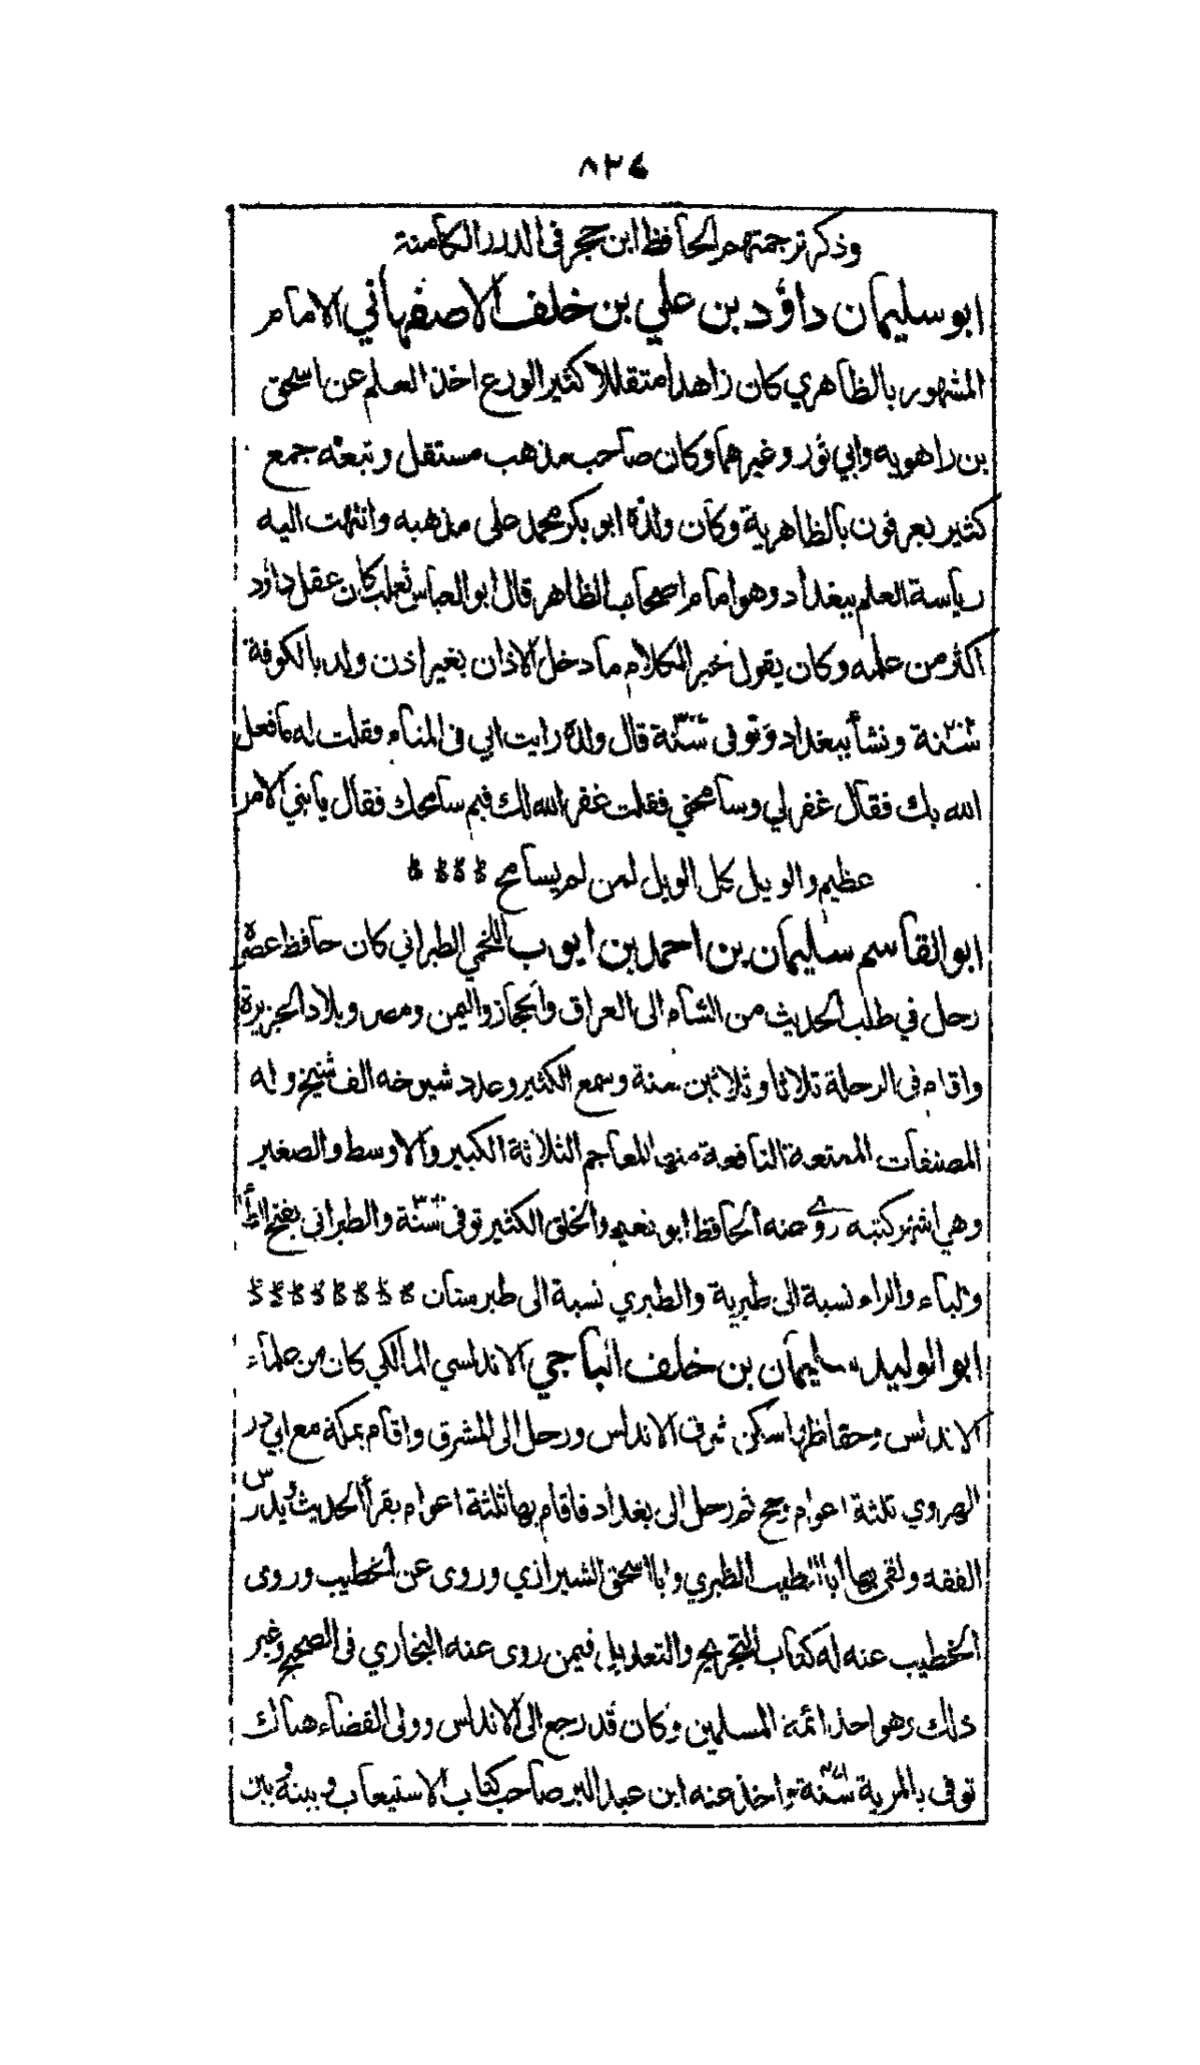 ٨٣٤
وذكر ترجمتهم الحافظ ابن حجر فى الدرر الكامنة
ابو سليمان داؤد بن علي بن خلف الاصفهاني الامام
المشهور بالظاهري كان زاهدا متقللا كثير الورع اخذ العلم عن اسحق
بن راهويه وابي ثور وغيرهما وكان صاحب مذهب مستقل وتبعه جمع
كثير يعرفون بالظاهرية وكان ولده ابو بكر محمد على مذهبه وانتهت اليه
رياسة العلم ببغداد وهو امام اصحاب الظاهر قال ابو العباس ثعلب كان عقل داؤد
اكثر من علمه وكان يقول خير الكلام ما دخل الاذان بغير اذن ولد بالكوفة
سنة ونشأ ببغداد وتوفى سنة قال ولده رايت ابي فى المنام فقلت له ما فعل
الله بك فقال غفر لي وسامحني فقلت غفر الله لك فبم سامحك فقال يا بني الامر
عظيم والويل كل الويل لمن لم يسامح
ابو القاسم سليمان بن احمد بن ايوب اللخمي الطبراني كان حافظ عصره
رحل في طلب الحديث من الشام الى العراق والحجاز واليمن ومصر وبلاد الجزيرة
واقام فى الرحلة ثلاثا وثلاثين سنة وسمع الكثير وعدد شيوخه الف شيخ وله
المصنفات الممتعة النافعة منها المعاجم الثلاثة الكبير والاوسط والصغير
وهي اشهر كتبه روى عنه الحافظ ابو نعيم والخلق الكثير توفى سنة والطبراني بفتح الطاء
والباء والراء نسبة الى طبرية والطبري نسبة الى طبرستان
ابو الوليد سليمان بن خلف الباجي الاندلسي المالكي كان من علماء
الاندلس وحفاظها سكن شرق الاندلس ورحل الى المشرق واقام بمكة مع ابي ذر
الهروي ثلثة اعوام وحج ثم رحل الى بغداد فاقام بها ثلثة اعوام يقرأ الحديث ويدرس
الفقه ولقى بها ابا الطيب الطبري وابا اسحق الشيرازي وروى عن الخطيب وروى
الخطيب عنه له كتاب التجريح والتعديل فيمن روى عنه البخاري فى الصحيح وغير
ذلك وهو احد ائمة المسلمين وكان قد رجع الى الاندلس وولى القضاء هناك
توفى بالمرية سنة واخذ عنه ابن عبد البر صاحب كتاب الاستيعاب وبينه وبين